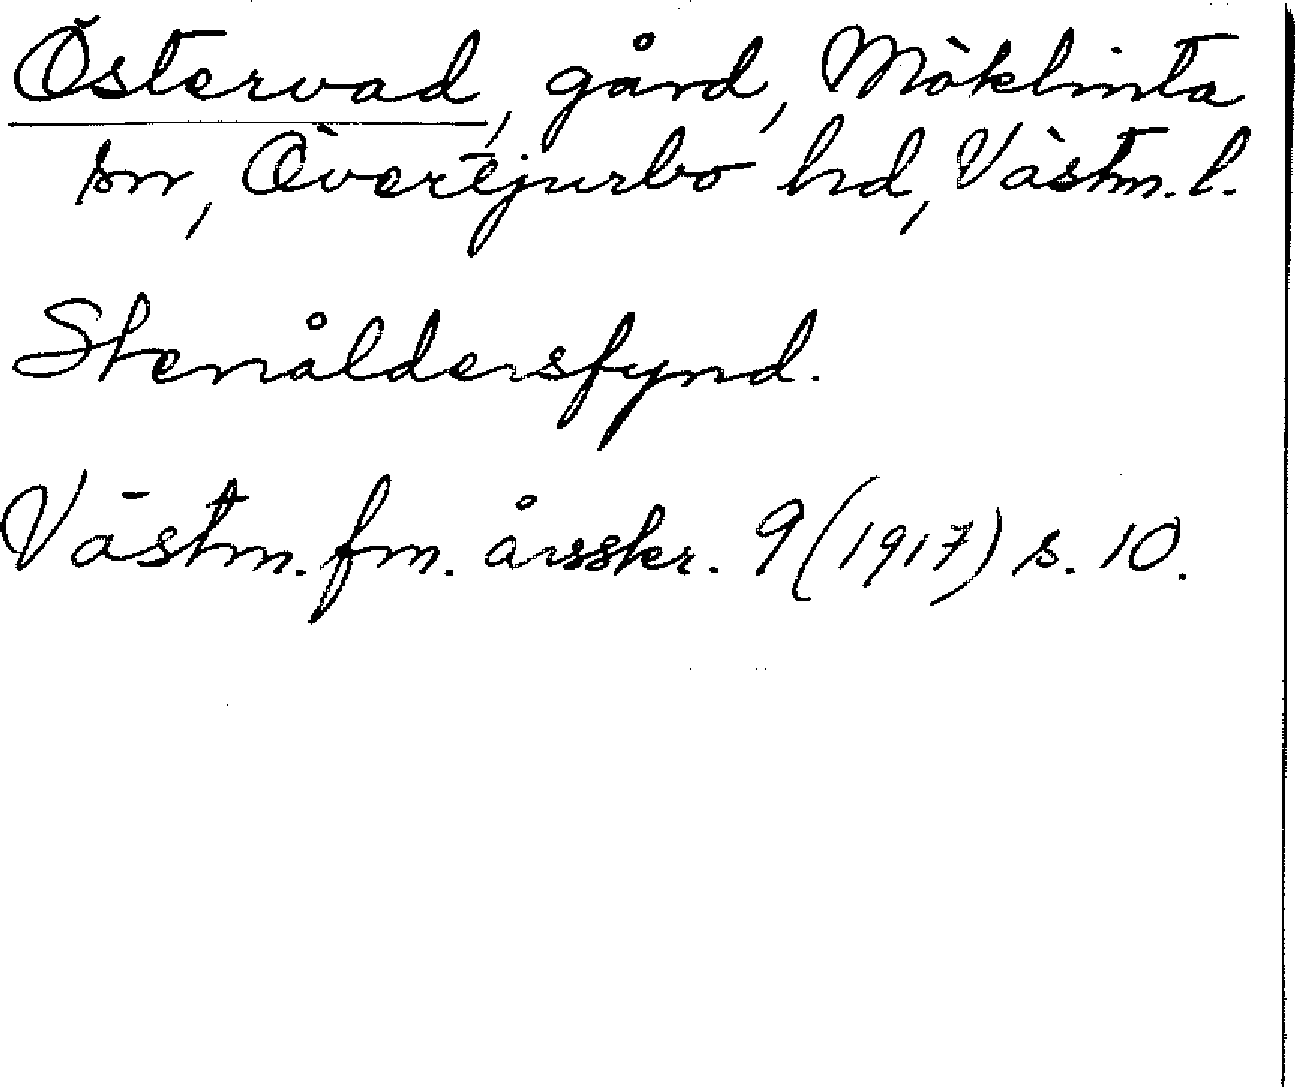 Östervad, gård, Möklinta
sn, Övertjurbo hd, Västm. l.
Stenåldersfynd.
Västm. fm. årsskr. 9 (1917) s. 10.